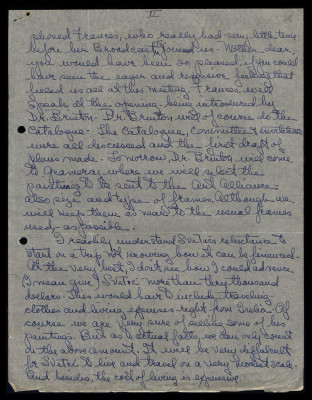 II
phoned Frances, who really had very little time
before her Broadcast, joined us. Mother dear,
you would have been so pleased, if you could
have seen the eager and responsive feeling that
filled us all at this meeting. Frances, will
speak at the opening - being introduced by
Dr. Brinton. Dr. Brinton will of course do the
Catalogue - The Catalogue, Committee, & invitations
were all discussed and the first draft of
plans made - To-morrow Dr. Brinton will come
to Granera where we will select the
paintings to be sent to the Art Alliance -
also size and type of frames. Although we
will keep them as near to the usual frames
used - as possible.
I readily understand Svetric's reluctance to
start on a trip not knowing how it can be financed -
At the very best, I don't see how I could advance,
(I mean give) Svetric more than three thousand
dollars - This would have to include, traveling
clothes and living expenses - right from India. Of
course we are very sure of selling some of his
paintings. But as of actual facts, we can only count
on the above amount. It will be very difficult
for Svetric to live and travel on a very modest scale.
And besides, the cost of living is expensive.